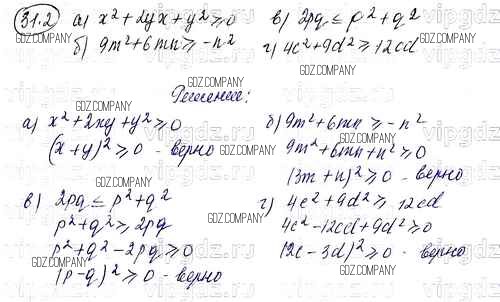 31.2 а) x² + 2yx + y² ≥ 0 в) 2pq ≤ p² + q²
б) 9m² + 6mn ≥ -n² г) 4c² + 9d² ≥ 12cd
Решение:
а) x² + 2xy + y² ≥ 0
(x + y)² ≥ 0 - верно
б) 9m² + 6mn ≥ -n²
9m² + 6mn + n² ≥ 0
(3m + n)² ≥ 0 - верно
в) 2pq ≤ p² + q²
p² + q² ≥ 2pq
p² + q² - 2pq ≥ 0
(p - q)² ≥ 0 - верно
г) 4c² + 9d² ≥ 12cd
4c² - 12cd + 9d² ≥ 0
(2c - 3d)² ≥ 0 - верно
GDZ.COMPANY
vipgdz.ru